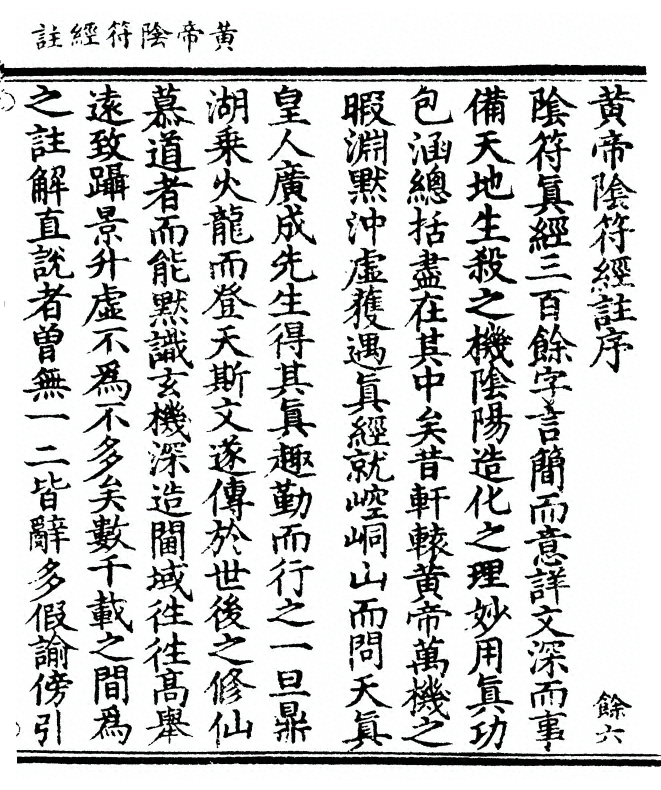 黃帝陰符經註
黃帝陰符經註序
餘六
陰符眞經三百餘字言簡而意詳文深而事
備天地生殺之機陰陽造化之理妙用眞功
包涵總括盡在其中矣昔軒轅黃帝萬機之
暇淵默沖虛獲遇眞經就崆峒山而問天眞
皇人廣成先生得其眞趣勤而行之一旦鼎
湖乗火龍而登天斯文遂傳於世後之修仙
慕道者而能默識玄機深造閫域徃徃高舉
遠致躡景升虛不爲不多矣數千載之間爲
之註解直說者曾無一二皆辭多假諭傍引